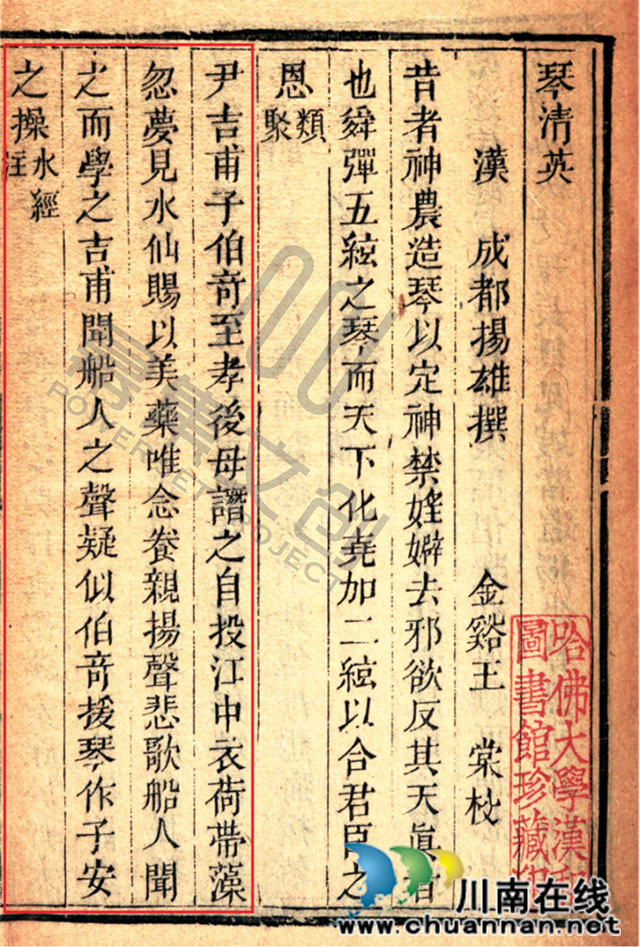 琴清英
漢 成都揚雄撰 金谿王 棠校
昔者神農造琴以定神禁婬嬖去邪欲反其天眞者
也舜彈五絃之琴而天下化堯加二絃以合君臣之
恩類聚
尹吉甫子伯奇至孝後母譖之自投江中衣荷帶藻
忽夢見水仙賜以美藥唯念養親揚聲悲歌船人聞
之而學之吉甫聞船人之聲疑似伯奇援琴作子安
之操水經注
哈佛大學漢和
圖書館珍藏
POWERNET PROJECT
川南在线
www.chuannan.net